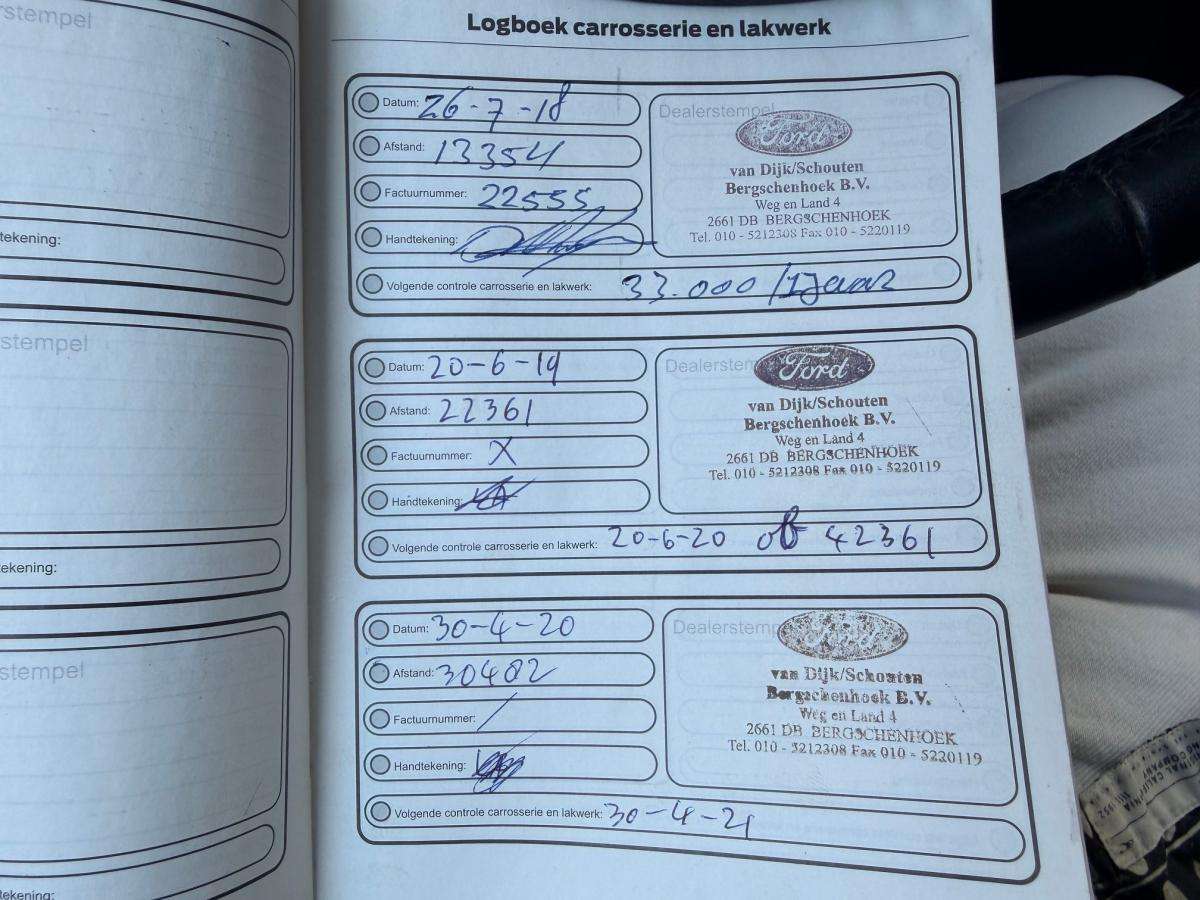 rstempel
tekening:
stempel
ekening:
stempel
tekening:
Logboek carrosserie en lakwerk
Datum: 26-7-18
Afstand: 13354
Factuurnummer: 22555
Handtekening:
Volgende controle carrosserie en lakwerk: 33.000 / 1 Jaar
Dealerstempel
Ford
van Dijk/Schouten
Bergschenhoek B.V.
Weg en Land 4
2661 DB BERGSCHENHOEK
Tel. 010 - 5212308 Fax 010 - 5220119
Datum: 20-6-19
Afstand: 22361
Factuurnummer: X
Handtekening:
Volgende controle carrosserie en lakwerk: 20-6-20 of 42361
Dealerstem
Ford
van Dijk/Schouten
Bergschenhoek B.V.
Weg en Land 4
2661 DB BERGSCHENHOEK
Tel. 010 - 5212308 Fax 010 - 5220119
Datum: 30-4-20
Afstand: 30402
Factuurnummer: /
Handtekening:
Volgende controle carrosserie en lakwerk: 30-4-21
Dealerstemp
Ford
van Dijk/Schouten
Bergschenhoek B.V.
Weg en Land 4
2661 DB BERGSCHENHOEK
Tel. 010 - 5212308 Fax 010 - 5220119